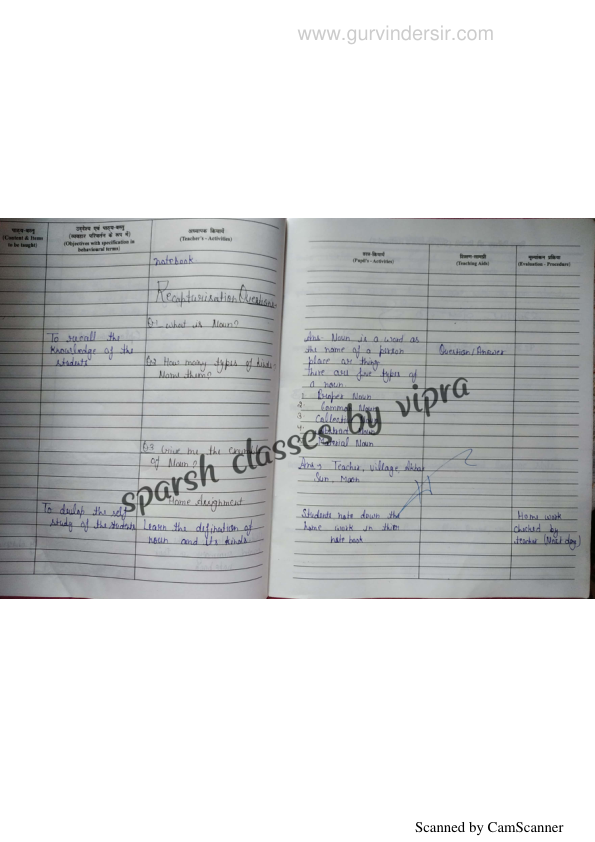 www.gurvindersir.com
पाठ्य-वस्तु
(Content & Items
to be taught)
उद्देश्य एवं पाठ्य-वस्तु
(व्यवहार परिवर्तन के रूप में)
(Objectives with specification in
behavioural terms)
अध्यापक क्रियायें
(Teacher's - Activities)
notebook.
Recapturization Questions
Q.1 what is Noun?
To recall the
knowledge of the
students
Q.2 How many types of
Name them?
Q.3 Give me the
of Noun?
Home Assignment
To devlop the self
study of the students
Learn the difination of
noun and its kinds.
छात्र-क्रियायें
(Pupil's - Activities)
शिक्षण-सामग्री
(Teaching Aids)
मूल्यांकन प्रक्रिया
(Evaluation - Procedure)
Ans Noun is a word as
the name of a person
place or thing.
There are five types of
a noun
Question/Answer
1. Proper Noun
2. Common Noun
3. Noun
4. Noun
Material Noun
Ans Teacher, village,
Sun, Moon
Students note down the
home work in their
note book
Home work
checked by
teacher (Next day)
sparsh classes by vipra
Scanned by CamScanner